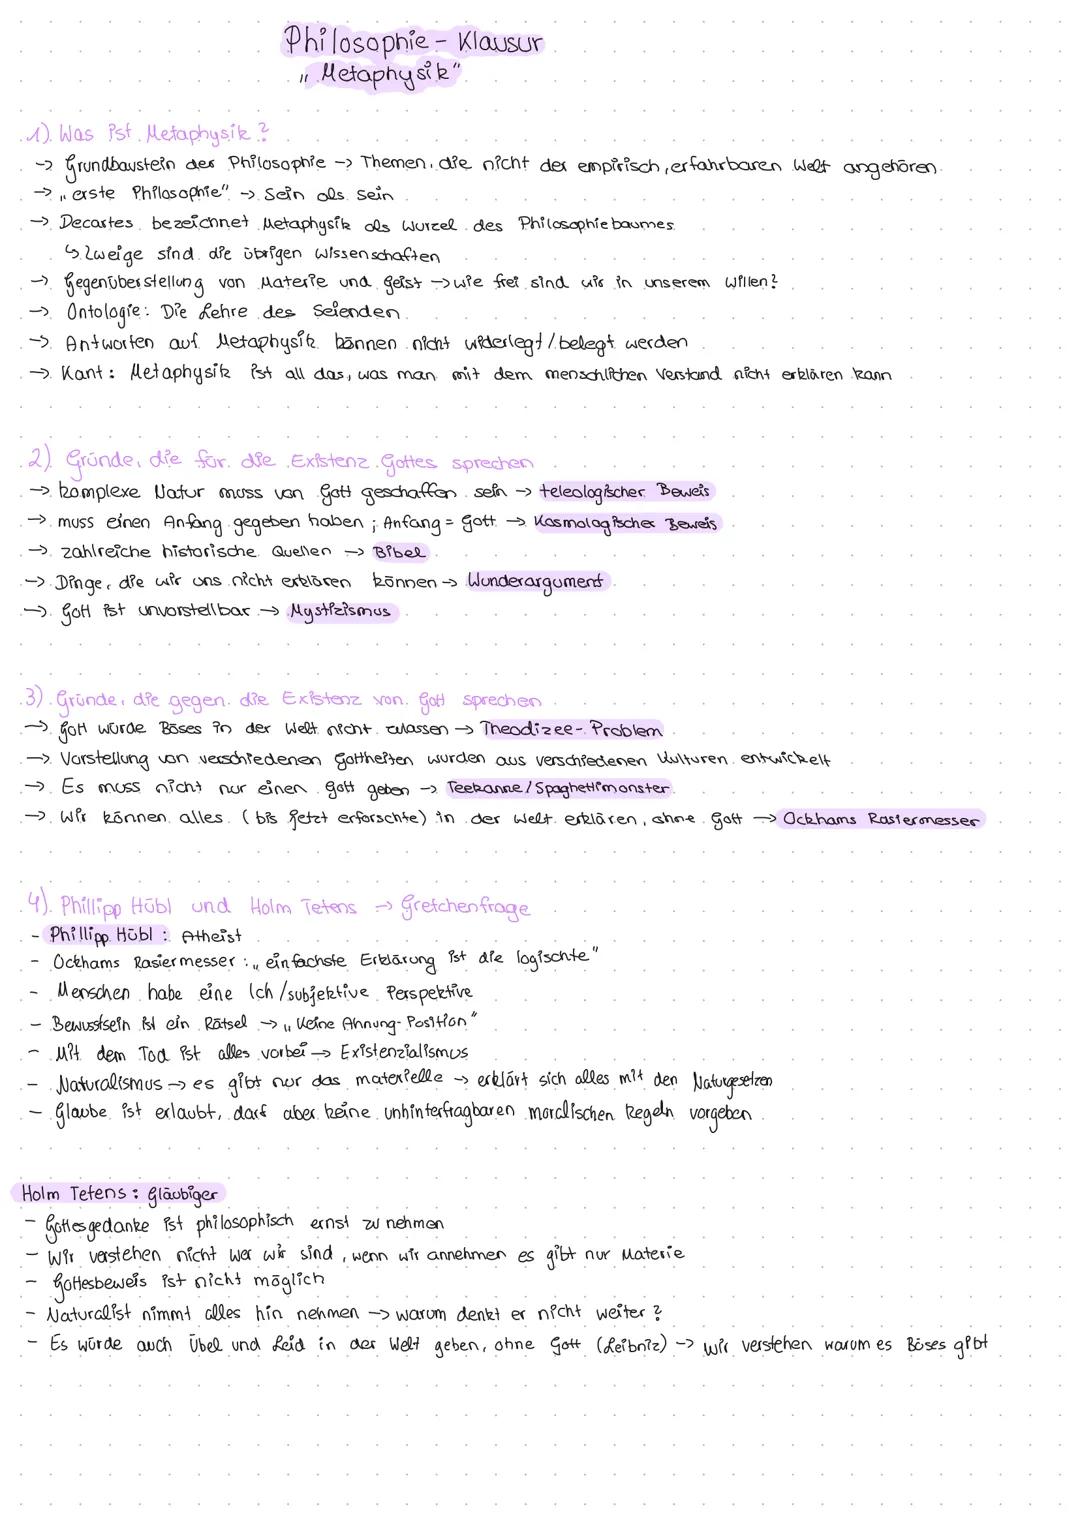 Philosophie - Klausur
"Metaphysik"
1) Was ist Metaphysik?
-> Grundbaustein der Philosophie -> Themen, die nicht der empirisch, erfahrbaren Welt angehören
-> "erste Philosophie" -> Sein als sein
-> Decartes bezeichnet Metaphysik als Wurzel des Philosophiebaumes
↳ Zweige sind die übrigen Wissenschaften
-> Gegenüberstellung von Materie und Geist -> wie frei sind wir in unserem Willen?
-> Ontologie: Die Lehre des Seienden
-> Antworten auf Metaphysik können nicht widerlegt / belegt werden
-> Kant: Metaphysik ist all das, was man mit dem menschlichen Verstand nicht erklären kann
2) Gründe, die für die Existenz Gottes sprechen
-> komplexe Natur muss von Gott geschaffen sein -> teleologischer Beweis
-> muss einen Anfang gegeben haben; Anfang = Gott -> Kosmologischer Beweis
-> zahlreiche historische Quellen -> Bibel
-> Dinge, die wir uns nicht erklären können -> Wunderargument
-> Gott ist unvorstellbar -> Mystizismus
3) Gründe, die gegen die Existenz von Gott sprechen
-> Gott würde Böses in der Welt nicht zulassen -> Theodizee-Problem
-> Vorstellung von verschiedenen Gottheiten wurden aus verschiedenen Kulturen entwickelt
-> Es muss nicht nur einen Gott geben -> Teekanne / Spaghettimonster
-> Wir können alles (bis jetzt erforschte) in der Welt erklären, ohne Gott -> Ockhams Rasiermesser
4) Phillipp Hübl und Holm Tetens -> Gretchenfrage
- Phillipp Hübl: Atheist
- Ockhams Rasiermesser: "einfachste Erklärung ist die logischte"
- Menschen habe eine Ich / subjektive Perspektive
- Bewusstsein ist ein Rätsel -> "Keine Ahnung-Position"
- Mit dem Tod ist alles vorbei -> Existenzialismus
- Naturalismus -> es gibt nur das materielle -> erklärt sich alles mit den Naturgesetzen
- Glaube ist erlaubt, darf aber keine unhinterfragbaren moralischen Regeln vorgeben
Holm Tetens: Gläubiger
- Gottesgedanke ist philosophisch ernst zu nehmen
- Wir verstehen nicht wer wir sind, wenn wir annehmen es gibt nur Materie
- Gottesbeweis ist nicht möglich
- Naturalist nimmt alles hin nehmen -> warum denkt er nicht weiter?
- Es würde auch Übel und Leid in der Welt geben, ohne Gott (Leibniz) -> wir verstehen warum es Böses gibt